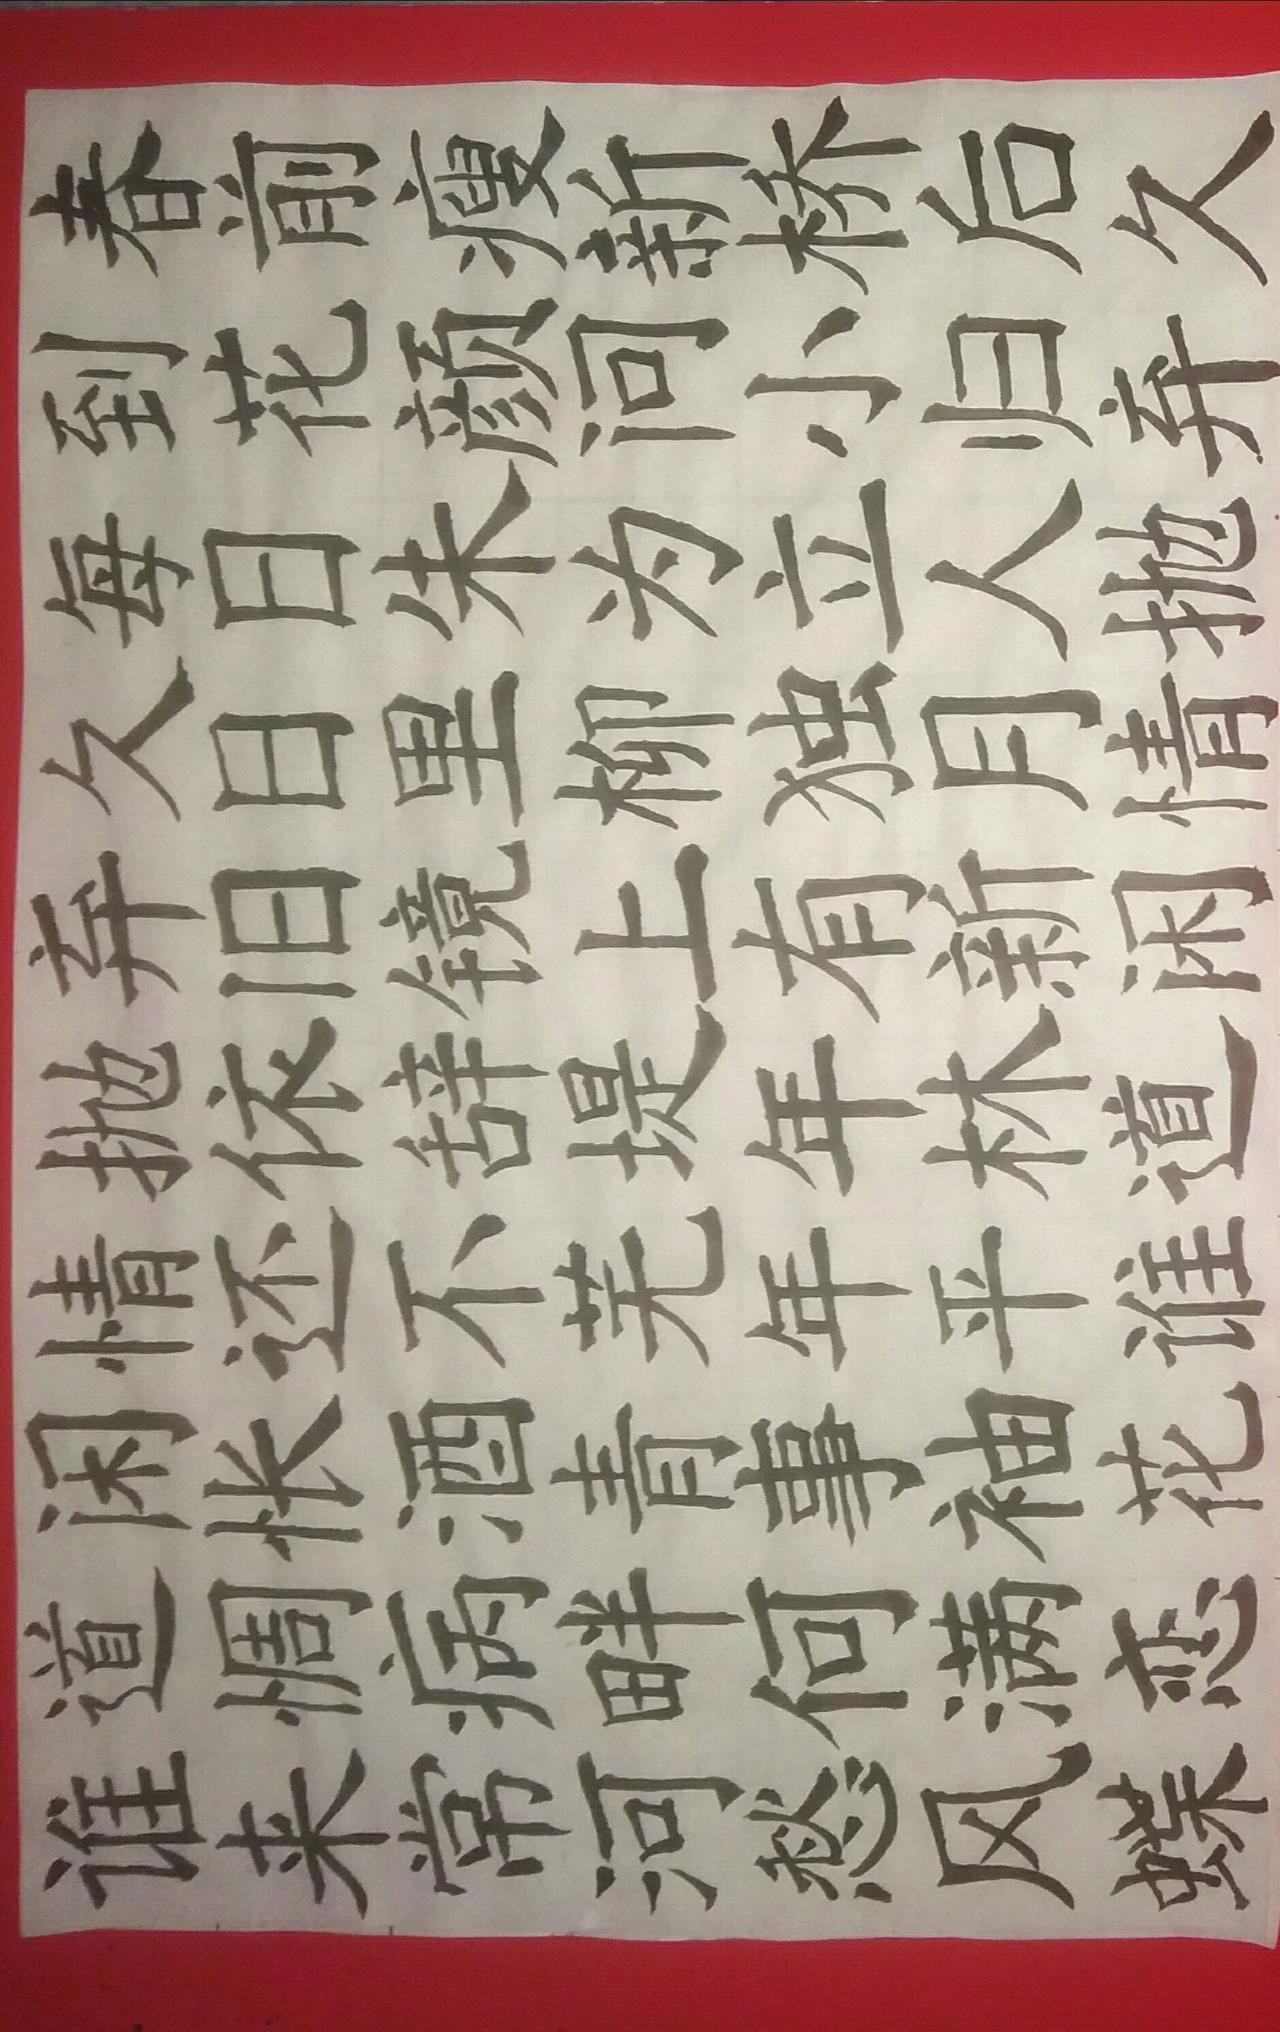 谁道闲情抛弃久每到春
来惆怅还依旧日日花前
常病酒不辞镜里朱颜瘦
河畔青芜堤上柳为问新
愁何事年年有独立小桥
风满袖平林新月人归后
蝶恋花谁道闲情抛弃久